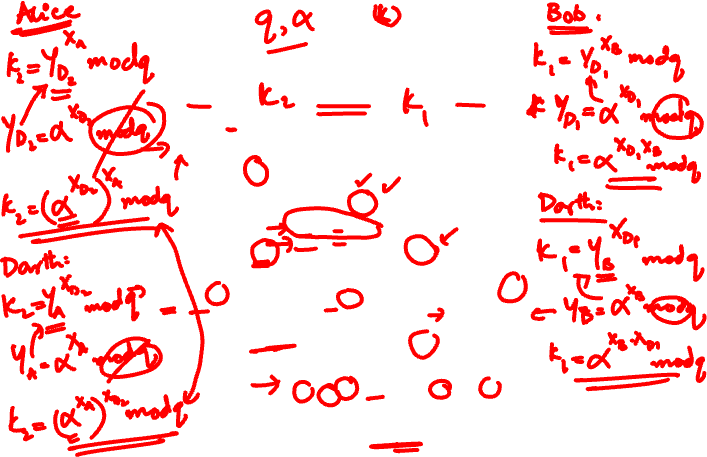 Alice
K₂ = Y_D₂^X_A mod q
Y_D₂ = α^X_D₂ mod q
K₂ = (α^X_D₂)^X_A mod q
Darth:
K₂ = Y_A^X_D₂ mod q
Y_A = α^X_A mod q
K₂ = (α^X_A)^X_D₂ mod q
q, α
K₂ = K₁
Bob.
K₁ = Y_D₁^X_B mod q
Y_D₁ = α^X_D₁ mod q
K₁ = α^X_D₁X_B mod q
Darth:
K₁ = Y_B^X_D₁ mod q
Y_B = α^X_B mod q
K₁ = α^X_B·X_D₁ mod q